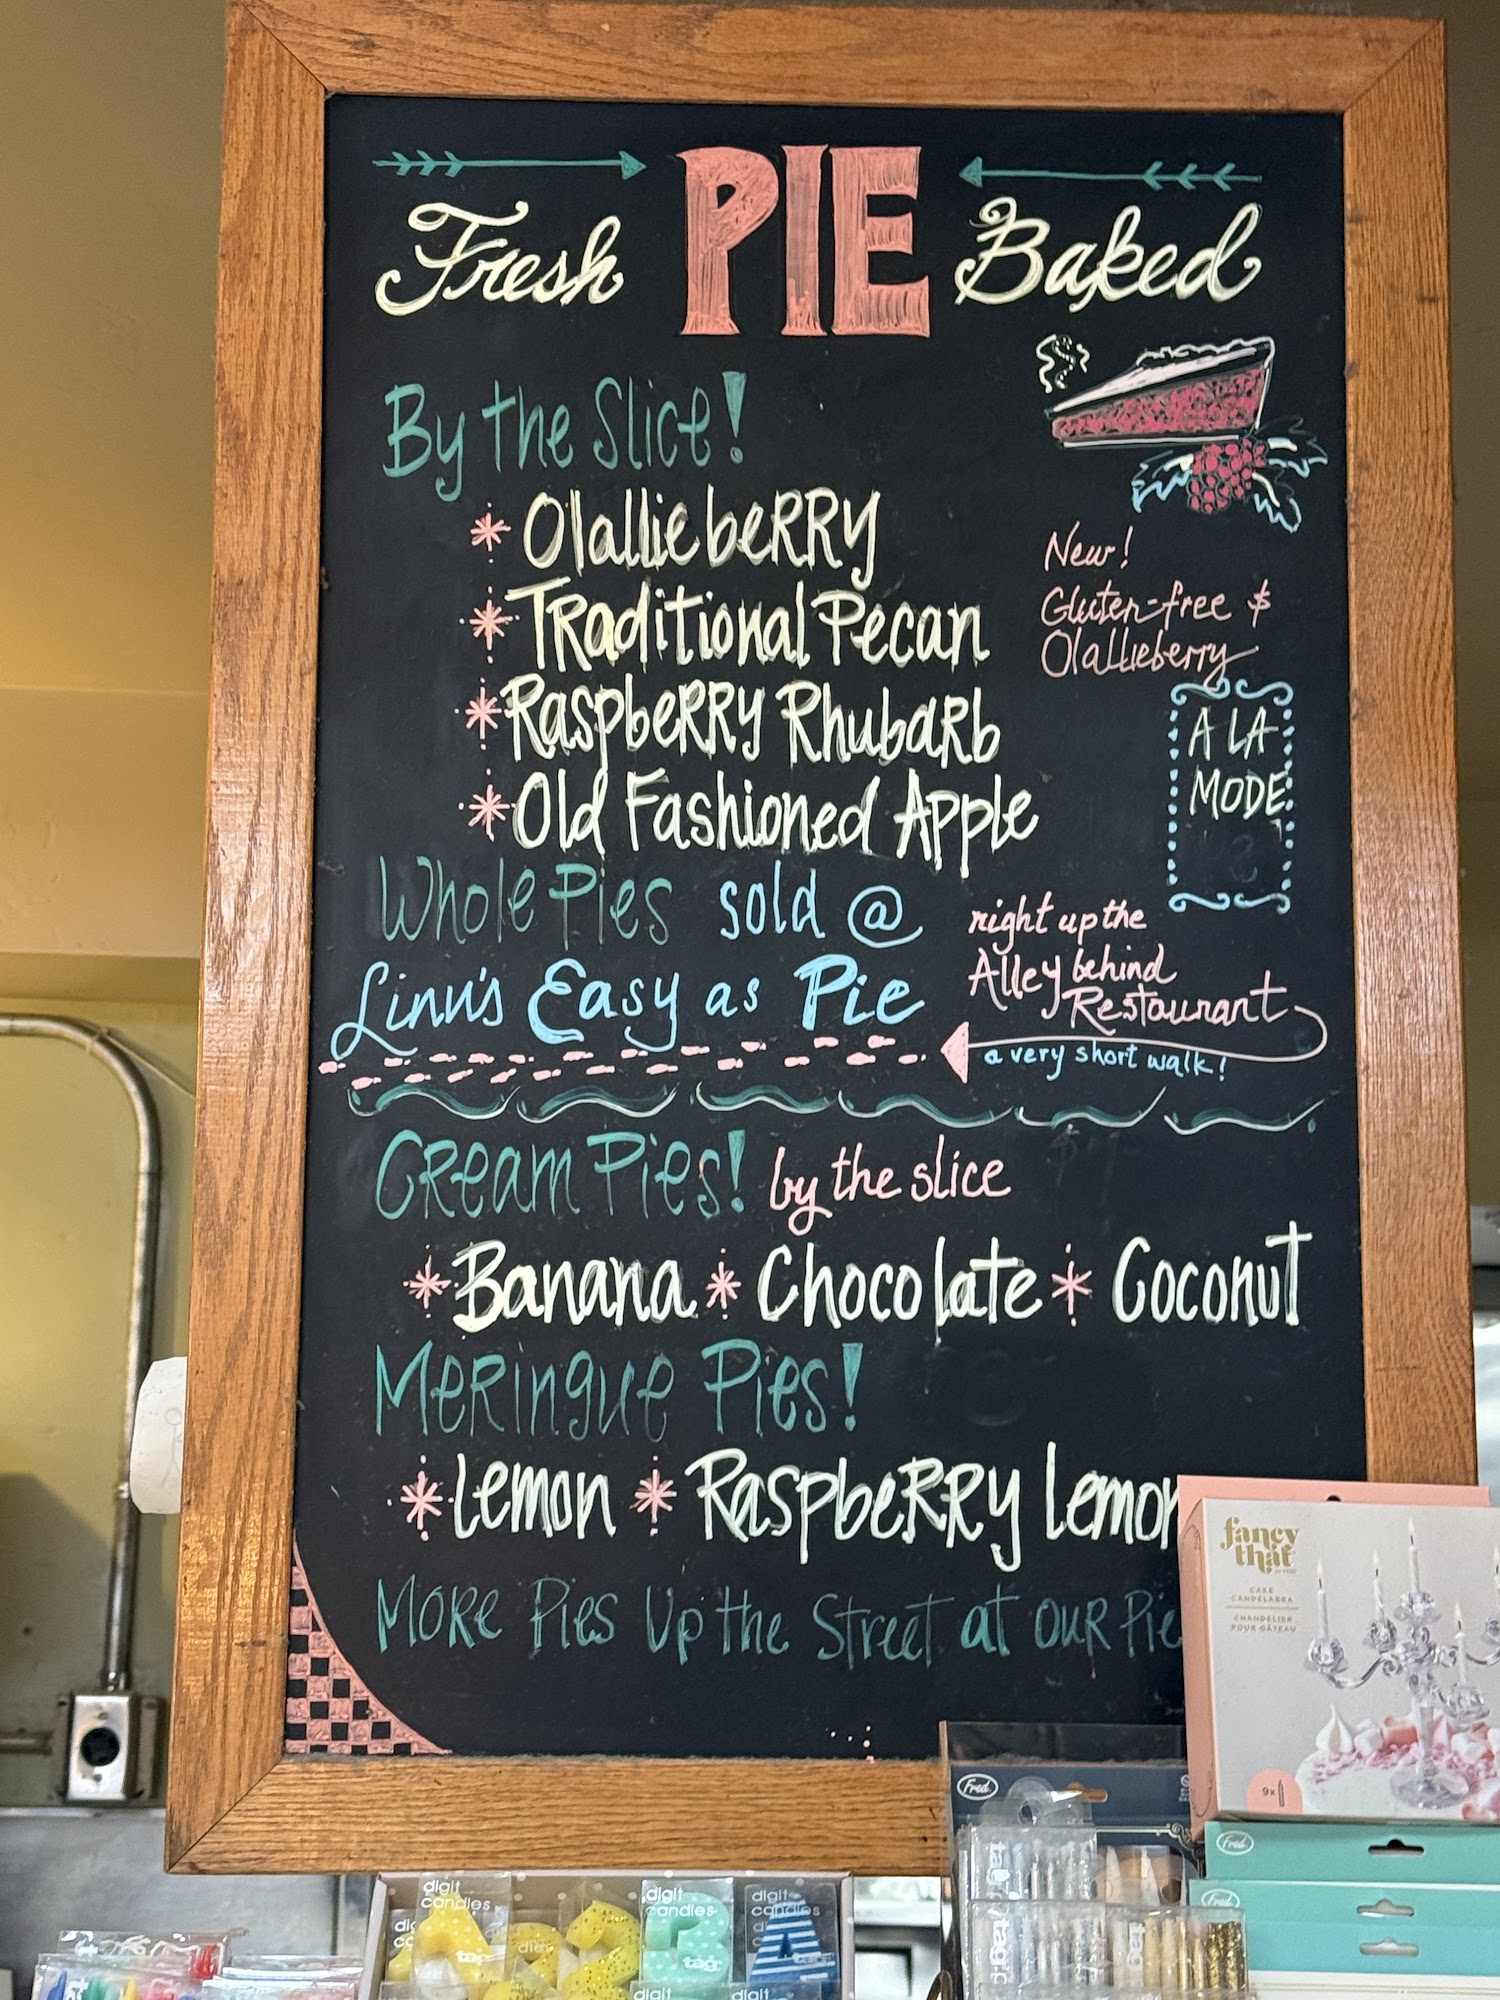 Fresh PIE Baked
By the Slice!
* Olallieberry
* Traditional Pecan
* Raspberry Rhubarb
* Old Fashioned Apple
New!
Gluten-free &
Olallieberry
A LA
MODE
Whole Pies sold @
Linn's Easy as Pie
right up the
Alley behind
Restaurant
a very short walk!
Cream Pies! by the slice
* Banana * Chocolate * Coconut
Meringue Pies!
* Lemon * Raspberry Lemon
More Pies Up the Street at our Pie
fancy
that
CAKE
CANDELABRA
CHANDELIER
POUR GÂTEAU
9x
Fred
Fred
Fred
digit
candies
digit
candies
digit
candies
tag
tag
tag
tag
digit
digit